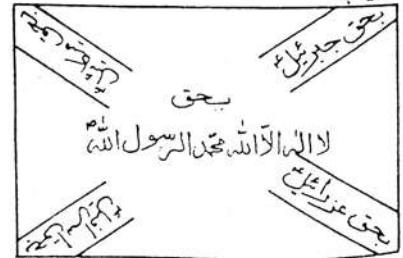 بحق جبرئیلؑ
بحق میکائیلؑ
بحق
لا اله الّا اللّٰه محمّد الرسول اللّٰهؐ
بحق عزرائیلؑ
بحق اسرافیلؑ